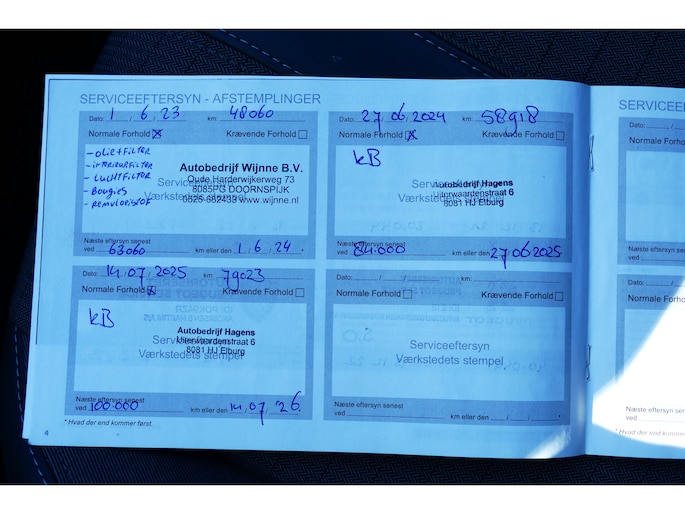 SERVICEEFTERSYN - AFSTEMPLINGER
Dato: 1 / 6 / 23 km: 48060
Normale Forhold Krævende Forhold
- OLIE+FILTER
- INTERIEURFILTER
- LUCHTFILTER
- Bougies
- REMVLOEISTOF
Autobedrijf Wijnne B.V.
Oude Harderwijkerweg 73
8085PG DOORNSPIJK
0525-662433 www.wijnne.nl
Serviceeftersyn
Værkstedets stempel
Næste eftersyn senest
ved 63060 km eller den 1.6.24.
Dato: 27/06/2024 km: 58918
Normale Forhold Krævende Forhold
KB
Autobedrijf Hagens
Uiterwaardenstraat 6
8081 HJ Elburg
Serviceeftersyn
Værkstedets stempel
Næste eftersyn senest
ved 84.000 km eller den 27 06 2025
Dato: 14.07/2025 km: 79023
Normale Forhold Krævende Forhold
KB
Autobedrijf Hagens
Uiterwaardenstraat 6
8081 HJ Elburg
Serviceeftersyn
Værkstedets stempel
Næste eftersyn senest
ved 100.000 km eller den 14.07.'26.
Dato: / / km:
Normale Forhold Krævende Forhold
Serviceeftersyn
Værkstedets stempel
Næste eftersyn senest
ved km eller den / /
* Hvad der end kommer først.
4
SERVICEEF
Dato: / /
Normale Forho
Næste eftersyn
ved
Dato:
Normale Fo
Næste eftersyn sene
ved
* Hvad der end kommer